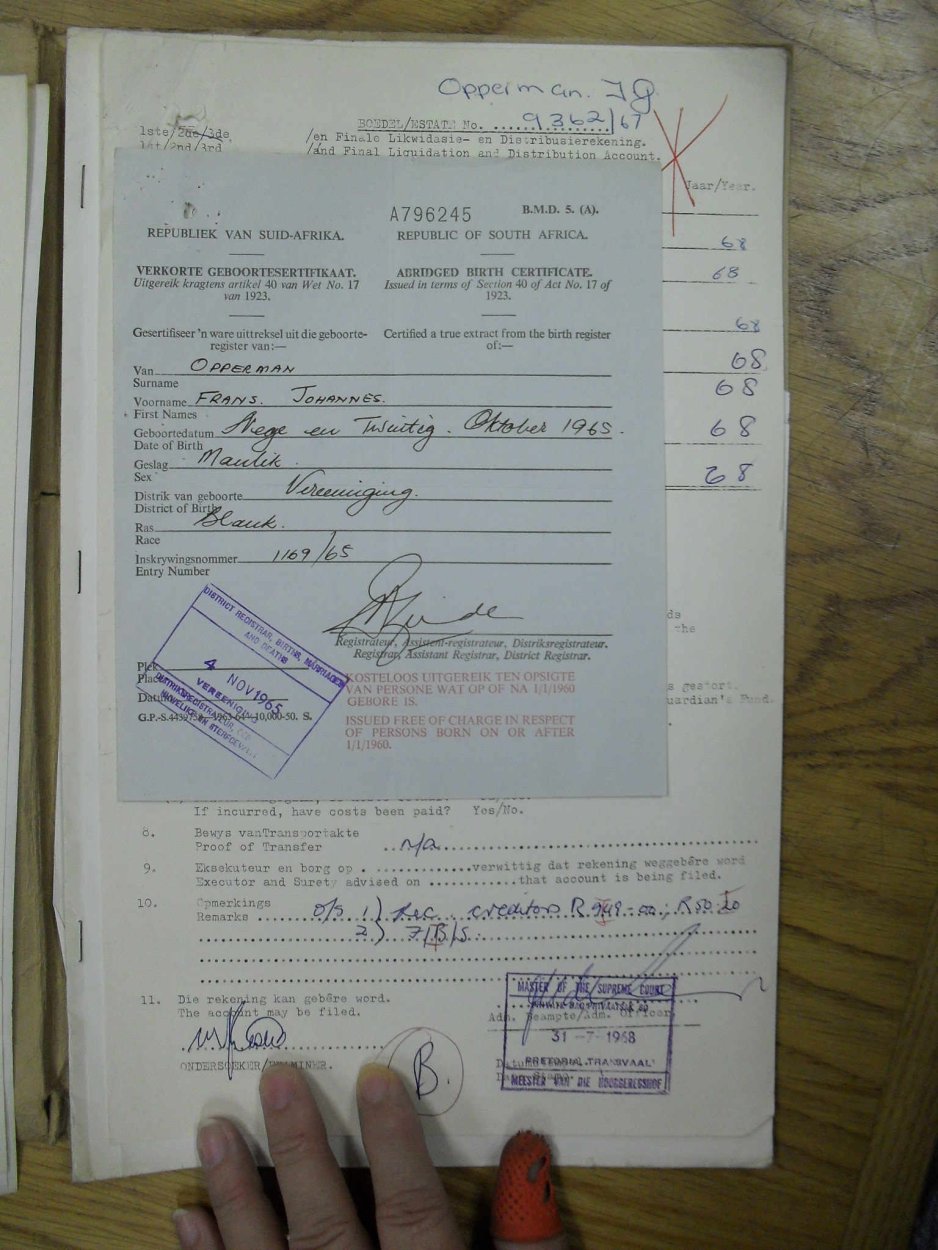 Opperman. J G
BOEDEL/ESTATE No. 9362/67
1ste/2de/3de /en Finale Likwidasie- en Distribusierekening.
1st/2nd/3rd /and Final Liquidation and Distribution Account.
Jaar/Year.
68
68
68
68
68
68
68
A796245 B.M.D. 5. (A).
REPUBLIEK VAN SUID-AFRIKA. REPUBLIC OF SOUTH AFRICA.
VERKORTE GEBOORTESERTIFIKAAT. ABRIDGED BIRTH CERTIFICATE.
Uitgereik kragtens artikel 40 van Wet No. 17 Issued in terms of Section 40 of Act No. 17 of
van 1923. 1923.
Gesertifiseer 'n ware uittreksel uit die geboorte- Certified a true extract from the birth register
register van:— of:—
Van OPPERMAN
Surname
Voorname FRANS. JOHANNES.
First Names
Geboortedatum Nege en Twintig. Oktober 1965.
Date of Birth
Geslag Manlik.
Sex
Distrik van geboorte Vereeniging.
District of Birth
Ras Blank.
Race
Inskrywingsnommer 1169/65
Entry Number
Registrateur, Assistent-registrateur, Distriksregistrateur.
Registrar, Assistant Registrar, District Registrar.
DISTRICT REGISTRAR, BIRTHS, MARRIAGES
AND DEATHS
4 NOV 1965
VEREENIGING
DISTRIKSREGISTRATEUR,
HUWELIKE EN STERFGEVALLE
Plek
Place
Datum
G.P.-S.
KOSTELOOS UITGEREIK TEN OPSIGTE
VAN PERSONE WAT OP OF NA 1/1/1960
GEBORE IS.
ISSUED FREE OF CHARGE IN RESPECT
OF PERSONS BORN ON OR AFTER
1/1/1960.
ds
the
s gestort.
uardian's Fund.
If incurred, have costs been paid? Yes/No.
8. Bewys vanTransportakte
Proof of Transfer n/a
9. Eksekuteur en borg op verwittig dat rekening weggebêre word
Executor and Surety advised on that account is being filed.
10. Opmerkings
Remarks o/s 1) Rec. creditors R
2) 7/B/S.
11. Die rekening kan gebêre word.
The account may be filed.
ONDERSOEKER/EXAMINER.
B.
Adm. Beampte/Adm. Officer.
MASTER OF THE SUPREME COURT
31 -7-1968
PRETORIA, TRANSVAAL
MEESTER VAN DIE HOOGGEREGSHOF